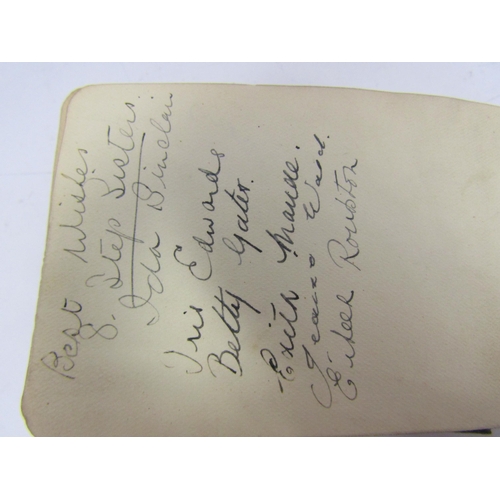 Best Wishes
8. Step Sisters.
Ida Sinclair.
Iris Edwards
Betty Gater.
Edith Maude.
Ward.
Eileen